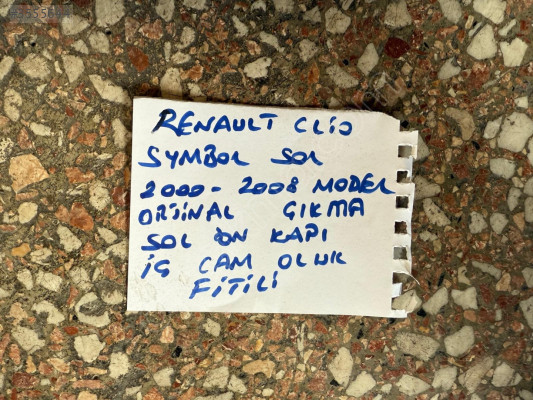 RENAULT CLİO
SYMBOL SOL
2000-2008 MODEL
ORJİNAL ÇIKMA
SOL ÖN KAPI
İÇ CAM OLUK
FİTİLİ